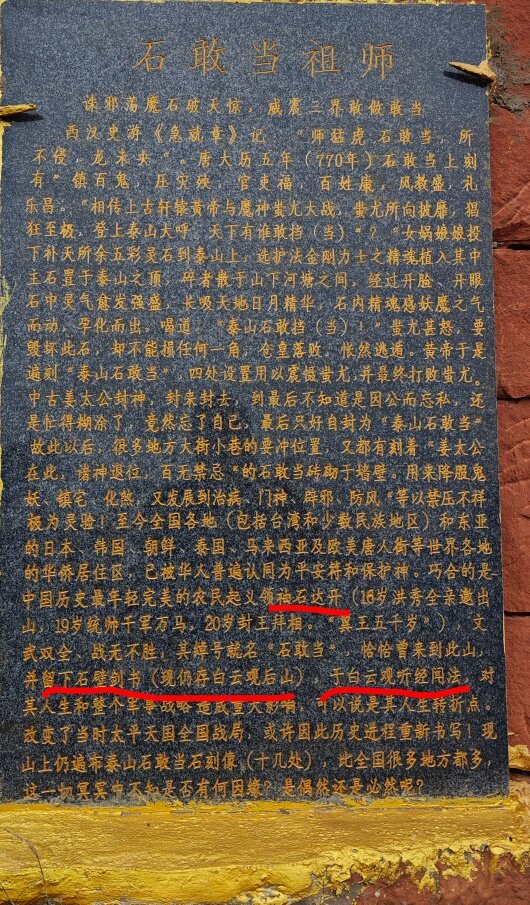 石敢当祖师
诛邪荡魔石破天惊，威震三界敢做敢当
西汉史游《急就章》记：“师猛虎，石敢当，所
不侵，龙未央”。唐大历五年（770年）石敢当上刻
有”镇百鬼，压灾殃，官吏福，百姓康，风教盛，礼
乐昌。“相传上古轩辕黄帝与魔神蚩尤大战，蚩尤所向披靡，猖
狂至极，登上泰山大呼，天下有谁敢挡（当）“？“女娲娘娘投
下补天所余五彩灵石到泰山上，选护法金刚力士之精魂植入其中
主石置于泰山之顶，碎者散于山下河塘之间，经过开脸、开眼
石中灵气愈发强盛，长吸天地日月精华，石内精魂感妖魔之气
而动，孕化而出，唱道，“泰山石敢挡（当）！”蚩尤甚怒，要
毁坏此石，却不能损任何一角，仓皇落败，怅然逃遁。黄帝于是
遍刻“泰山石敢当”，四处设置用以震慑蚩尤，并最终打败蚩尤。
中古姜太公封神，封来封去，到最后不知道是因公而忘私，还
是忙得糊涂了，竟然忘了自己，最后只好自封为“泰山石敢当”
故此以后，很多地方大街小巷的要冲位置，又都有刻着“姜太公
在此，诸神退位，百无禁忌“的石敢当砖砌于墙壁。用来降服鬼
妖、镇宅、化煞，又发展到治病、门神、辟邪、防风“等以禁压不祥
极为灵验！至今全国各地（包括台湾和少数民族地区）和东亚
的日本、韩国、朝鲜、泰国、马来西亚及欧美唐人街等世界各地
的华侨居住区，已被华人普遍认同为平安符和保护神。巧合的是
中国历史最年轻完美的农民起义领袖石达开（16岁洪秀全亲邀出
山，19岁统帅千军万马，20岁封王拜相。“翼王五千岁”）文
武双全、战无不胜，其绰号就名“石敢当”，恰恰曾来到此山，
并留下石壁剑书（现仍存白云观后山），于白云观听经闻法，对
其人生和整个军事战略造成重大影响，可以说是其人生转折点。
改变了当时太平天国全国战局，或许因此历史进程重新书写！现
山上仍遍布泰山石敢当石刻像（十几处），此全国很多地方都多，
这一切冥冥中不知是否有何因缘？是偶然还是必然呢？